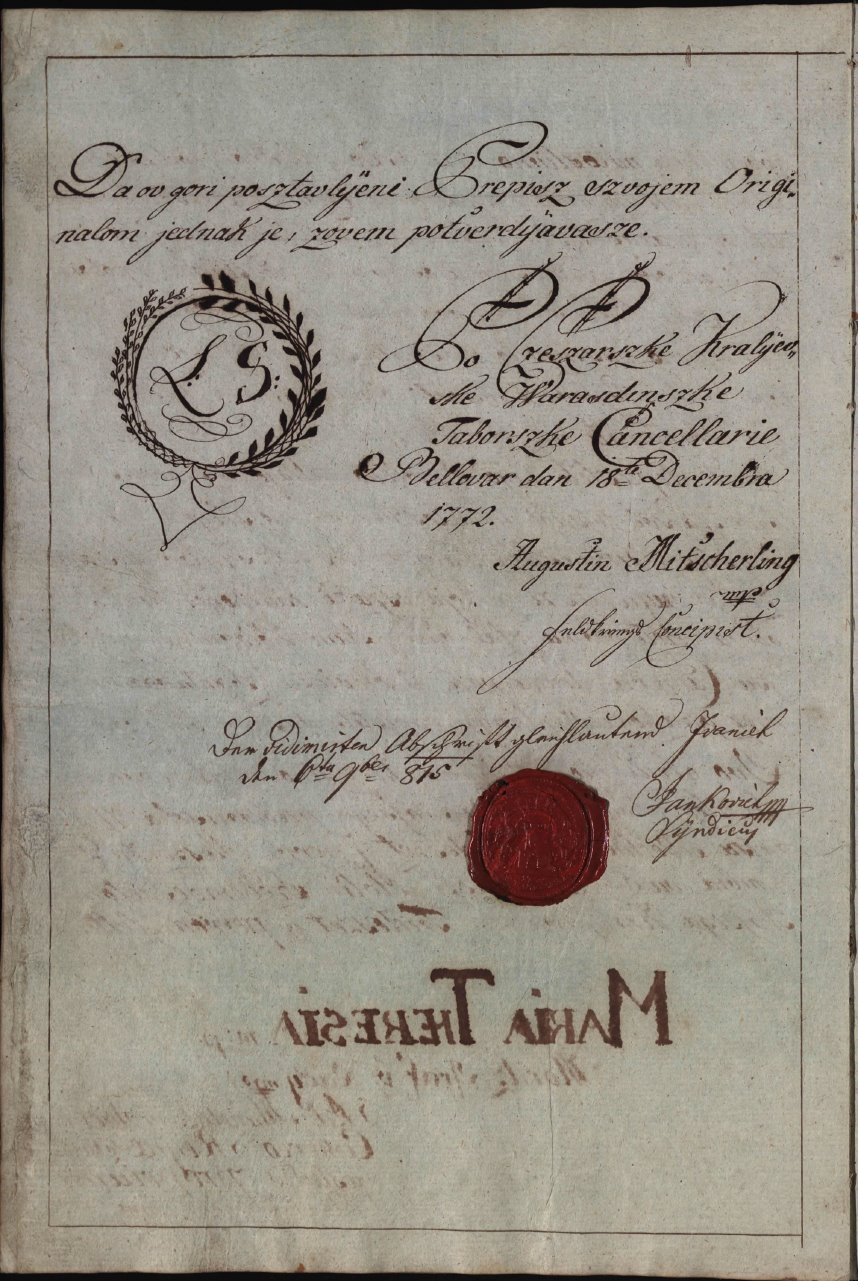 Da ov gori posztavlyeni Prepisz szvojem Origi-
nalom jednak je, zovem potverdyávasze.
L: S:
Po Czeszarszke Kralyev-
ske Warasdinszke
Taborszke Cancellarie
Bellovar dan 18te Decembra
1772.
Augustin Mitscherling
mp
Feldkriegs Concipist.
Der vidimirten Abschrift gleichlautend. Ivanich
den 6ten 9ber 815
Jankovich
Syndicus
MARIA THERESIA